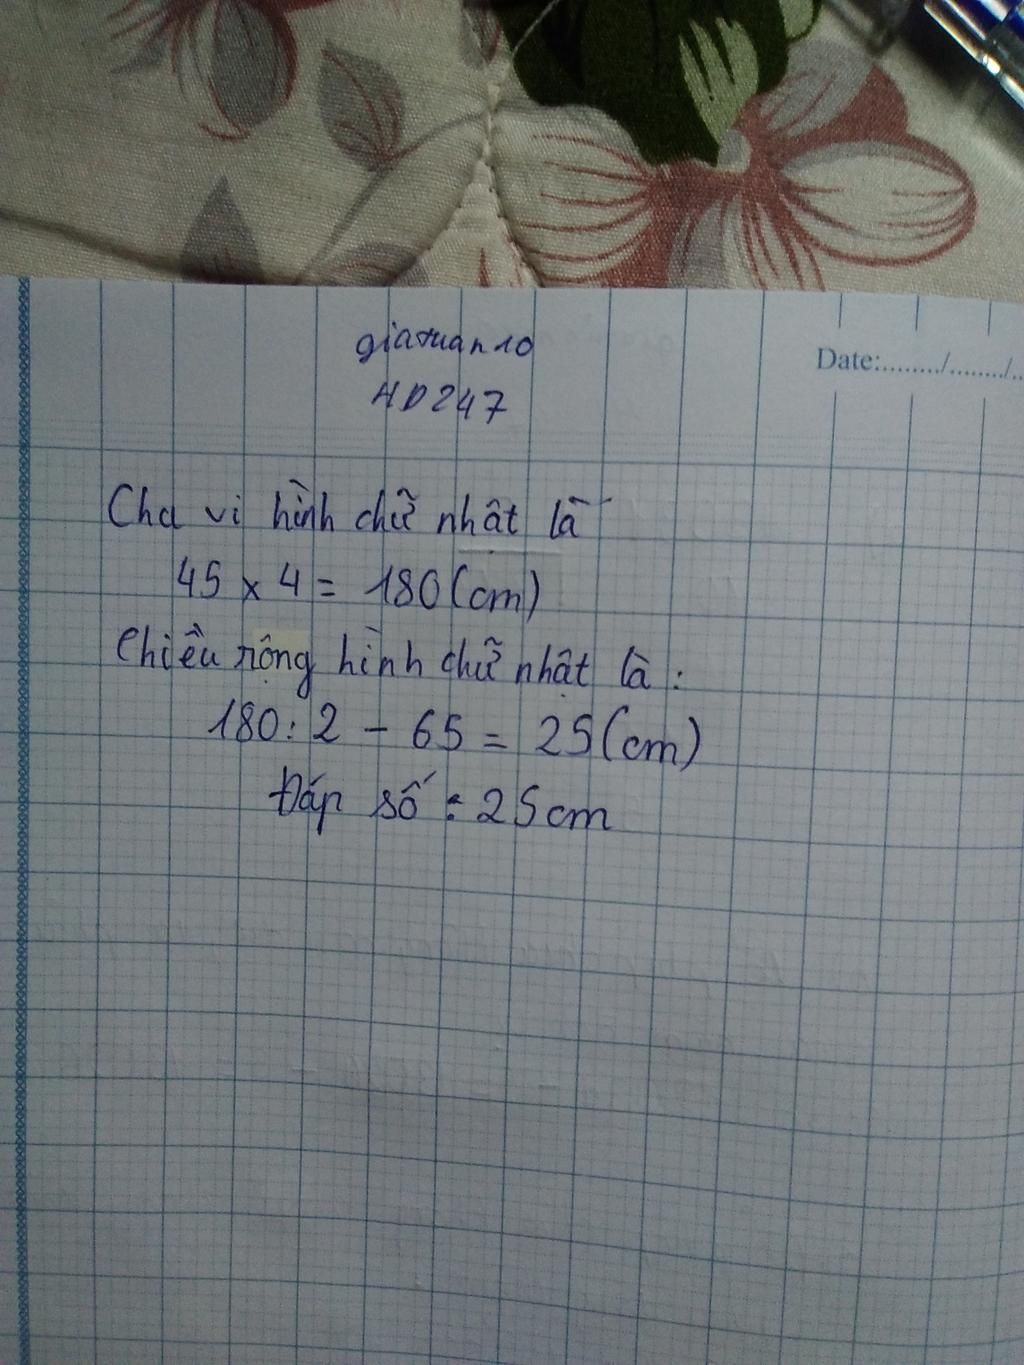 giatuan10
HD247
Date:......../......../..
Chu vi hình chữ nhât là
45 x 4 = 180 (cm)
Chiều rộng hình chữ nhật là :
180 : 2 - 65 = 25 (cm)
Đáp số : 25 cm